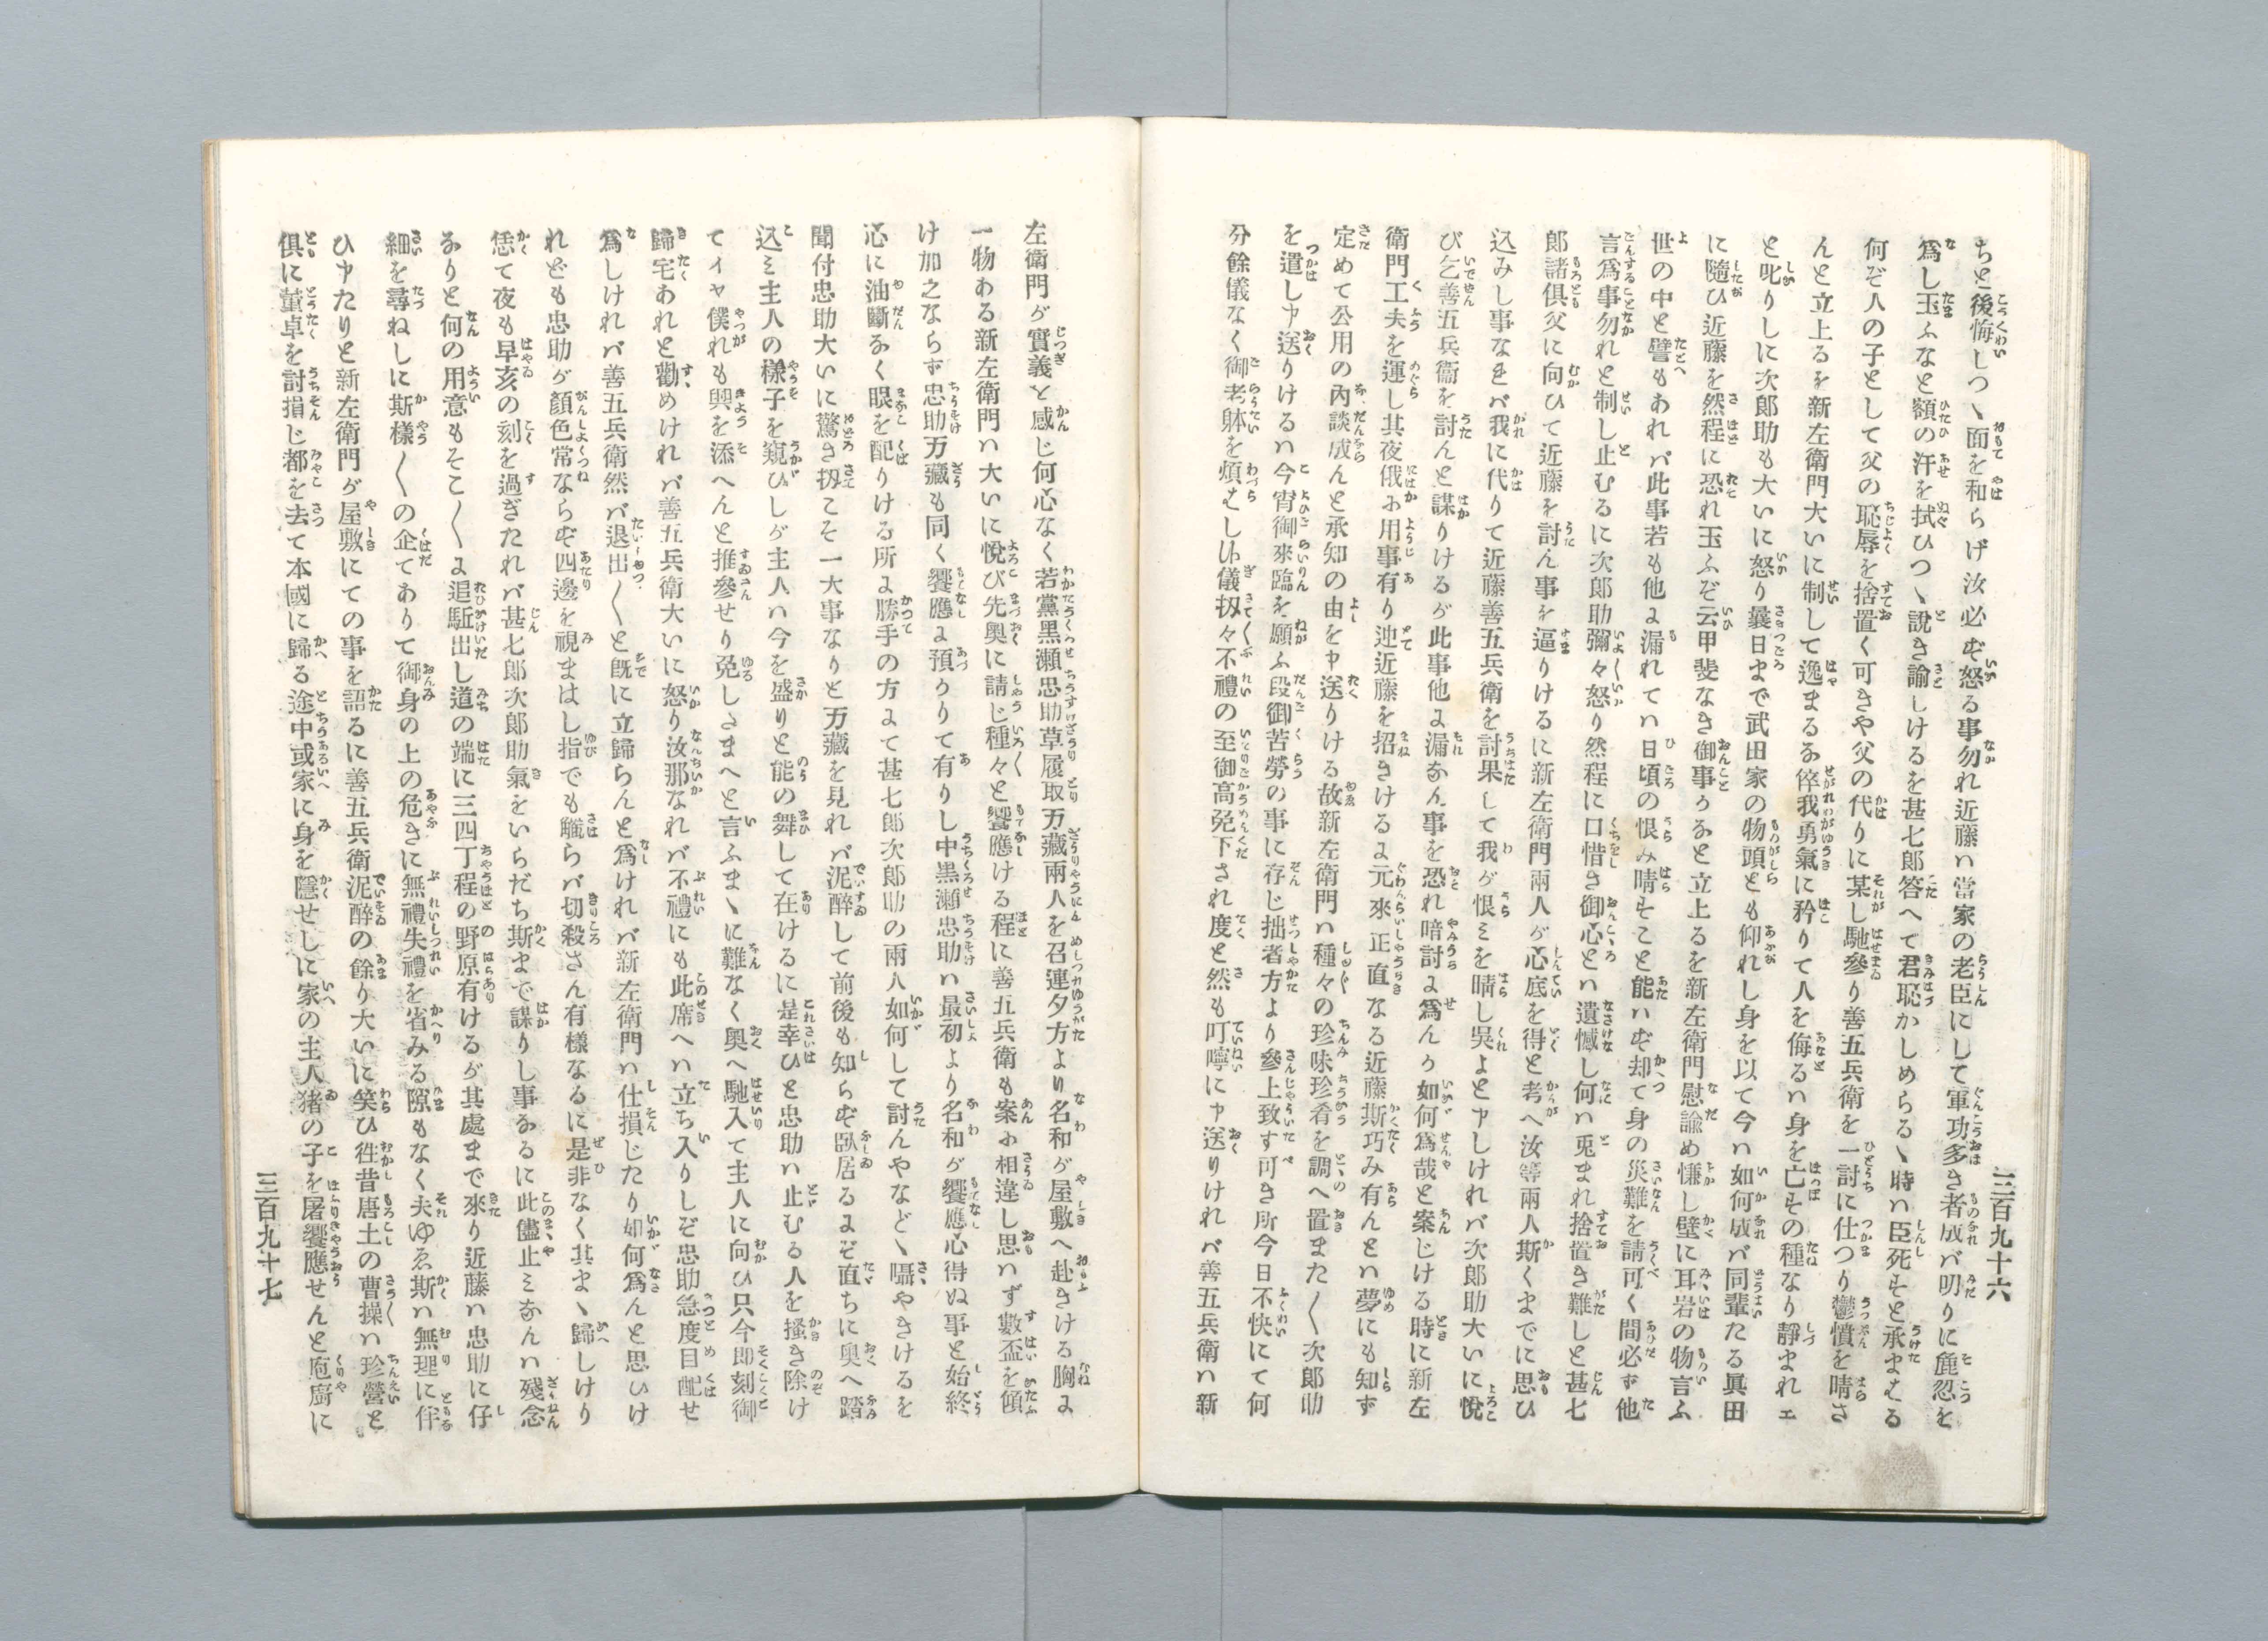 三百九十六
ちと後悔しつゝ面を和らげ汝必ず怒る事勿れ近藤ハ當家の老臣にして軍功多き者成バ叨りに麁忽を
爲し玉ふなと額の汗を拭ひつゝ說き諭しけるを甚七郎答へて君恥かしめらるゝ時ハ臣死すと承まはる
何ぞ人の子として父の恥辱を捨置く可きや父の代りに某し馳參り善五兵衛を一討に仕つり鬱憤を晴さ
んと立上るを新左衛門大いに制して逸まるな倅我勇氣に矜りて人を侮るハ身を亡すの種なり靜まれヱ
と叱りしに次郎助も大いに怒り曩日まで武田家の物頭とも仰れし身を以て今ハ如何成バ同輩たる眞田
に隨ひ近藤を然程に恐れ玉ふぞ云甲斐なき御事かなと立上るを新左衛門慰諭め慊し壁に耳岩の物言ふ
世の中と譬もあれバ此事若も他に漏れてハ日頃の恨み晴すこと能ハず却て身の災難を請可く間必ず他
言爲事勿れと制し止むるに次郎助彌々怒り然程に口惜き御心とハ遺憾し何ハ兎まれ捨置き難しと甚七
郎諸俱父に向ひて近藤を討ん事を逼りけるに新左衛門兩人が心底を得と考へ汝等兩人斯くまでに思ひ
込みし事なれバ我に代りて近藤善五兵衛を討果して我が恨ミを晴し吳よと申しけれバ次郎助大いに悅
び乞善五兵衛を討んと謀りけるが此事他に漏なん事を恐れ暗討に爲んか如何爲哉と案じける時に新左
衛門工夫を運し其夜俄か用事有り迚近藤を招きけるに元來正直なる近藤斯巧み有んとハ夢にも知ず
定めて公用の內談成んと承知の由を申送りける故新左衛門ハ種々の珍味珍肴を調へ置また〱次郎助
を遣し申送りけるハ今宵御來臨を願ふ段御苦勞の事に存じ拙者方より參上致す可き所今日不快にて何
分餘儀なく御老躰を煩はし候儀扨々不禮の至御高免下され度と然も叮嚀に申送りけれバ善五兵衛ハ新
左衛門が實義と感じ何心なく若黨黑瀨忠助草履取万藏兩人を召連夕方より名和が屋敷へ赴きける胸に
一物ある新左衛門ハ大いに悅び先奧に請じ種々と饗應ける程に善五兵衛も案に相違し思ハず數盃を傾
け加之ならず忠助万藏も同く饗應に預かりて有りし中黑瀨忠助ハ最初より名和が饗應心得ぬ事と始終
心に油斷なく眼を配りける所に勝手の方にて甚七郎次郎助の兩人如何して討んやなどゝ囁やきけるを
聞付忠助大いに驚き扨こそ一大事なりと万藏を見れバ泥醉して前後も知らず臥居るにぞ直ちに奧へ踏
込ミ主人の樣子を窺ひしが主人ハ今を盛りと能の舞して在けるに是幸ひと忠助ハ止むる人を搔き除け
てイヤ僕れも興を添へんと推參せり免しさまへと言ふまゝに難なく奧へ馳入て主人に向ひ只今即刻御
歸宅あれと勸めけれバ善五兵衛大いに怒り汝那なれバ不禮にも此席へハ立ち入りしぞ忠助急度目配せ
爲しけれバ善五兵衛然バ退出〱と旣に立歸らんと爲けれバ新左衛門ハ仕損じたり如何爲んと思ひけ
れども忠助が顏色常ならず四邊を視まはし指でも觸らバ切殺さん有樣なるに是非なく其まゝ歸しけり
恁て夜も早亥の刻を過ぎたれバ甚七郎次郎助氣をいらだち斯まで謀りし事なるに此儘止ミなんハ殘念
なりと何の用意もそこ〱に追駈出し道の端に三四丁程の野原有けるが其處まで來り近藤ハ忠助に仔
細を尋ねしに斯樣〱の企てありて御身の上の危きに無禮失禮を省みる隙もなく夫ゆゑ斯ハ無理に伴
ひ申たりと新左衛門が屋敷にての事を語るに善五兵衛泥醉の餘り大いに笑ひ徃昔唐土の曹操ハ珍營と
俱に董卓を討損じ都を去て本國に歸る途中或家に身を隱せしに家の主人猪の子を屠饗應せんと庖廚に
三百九十七